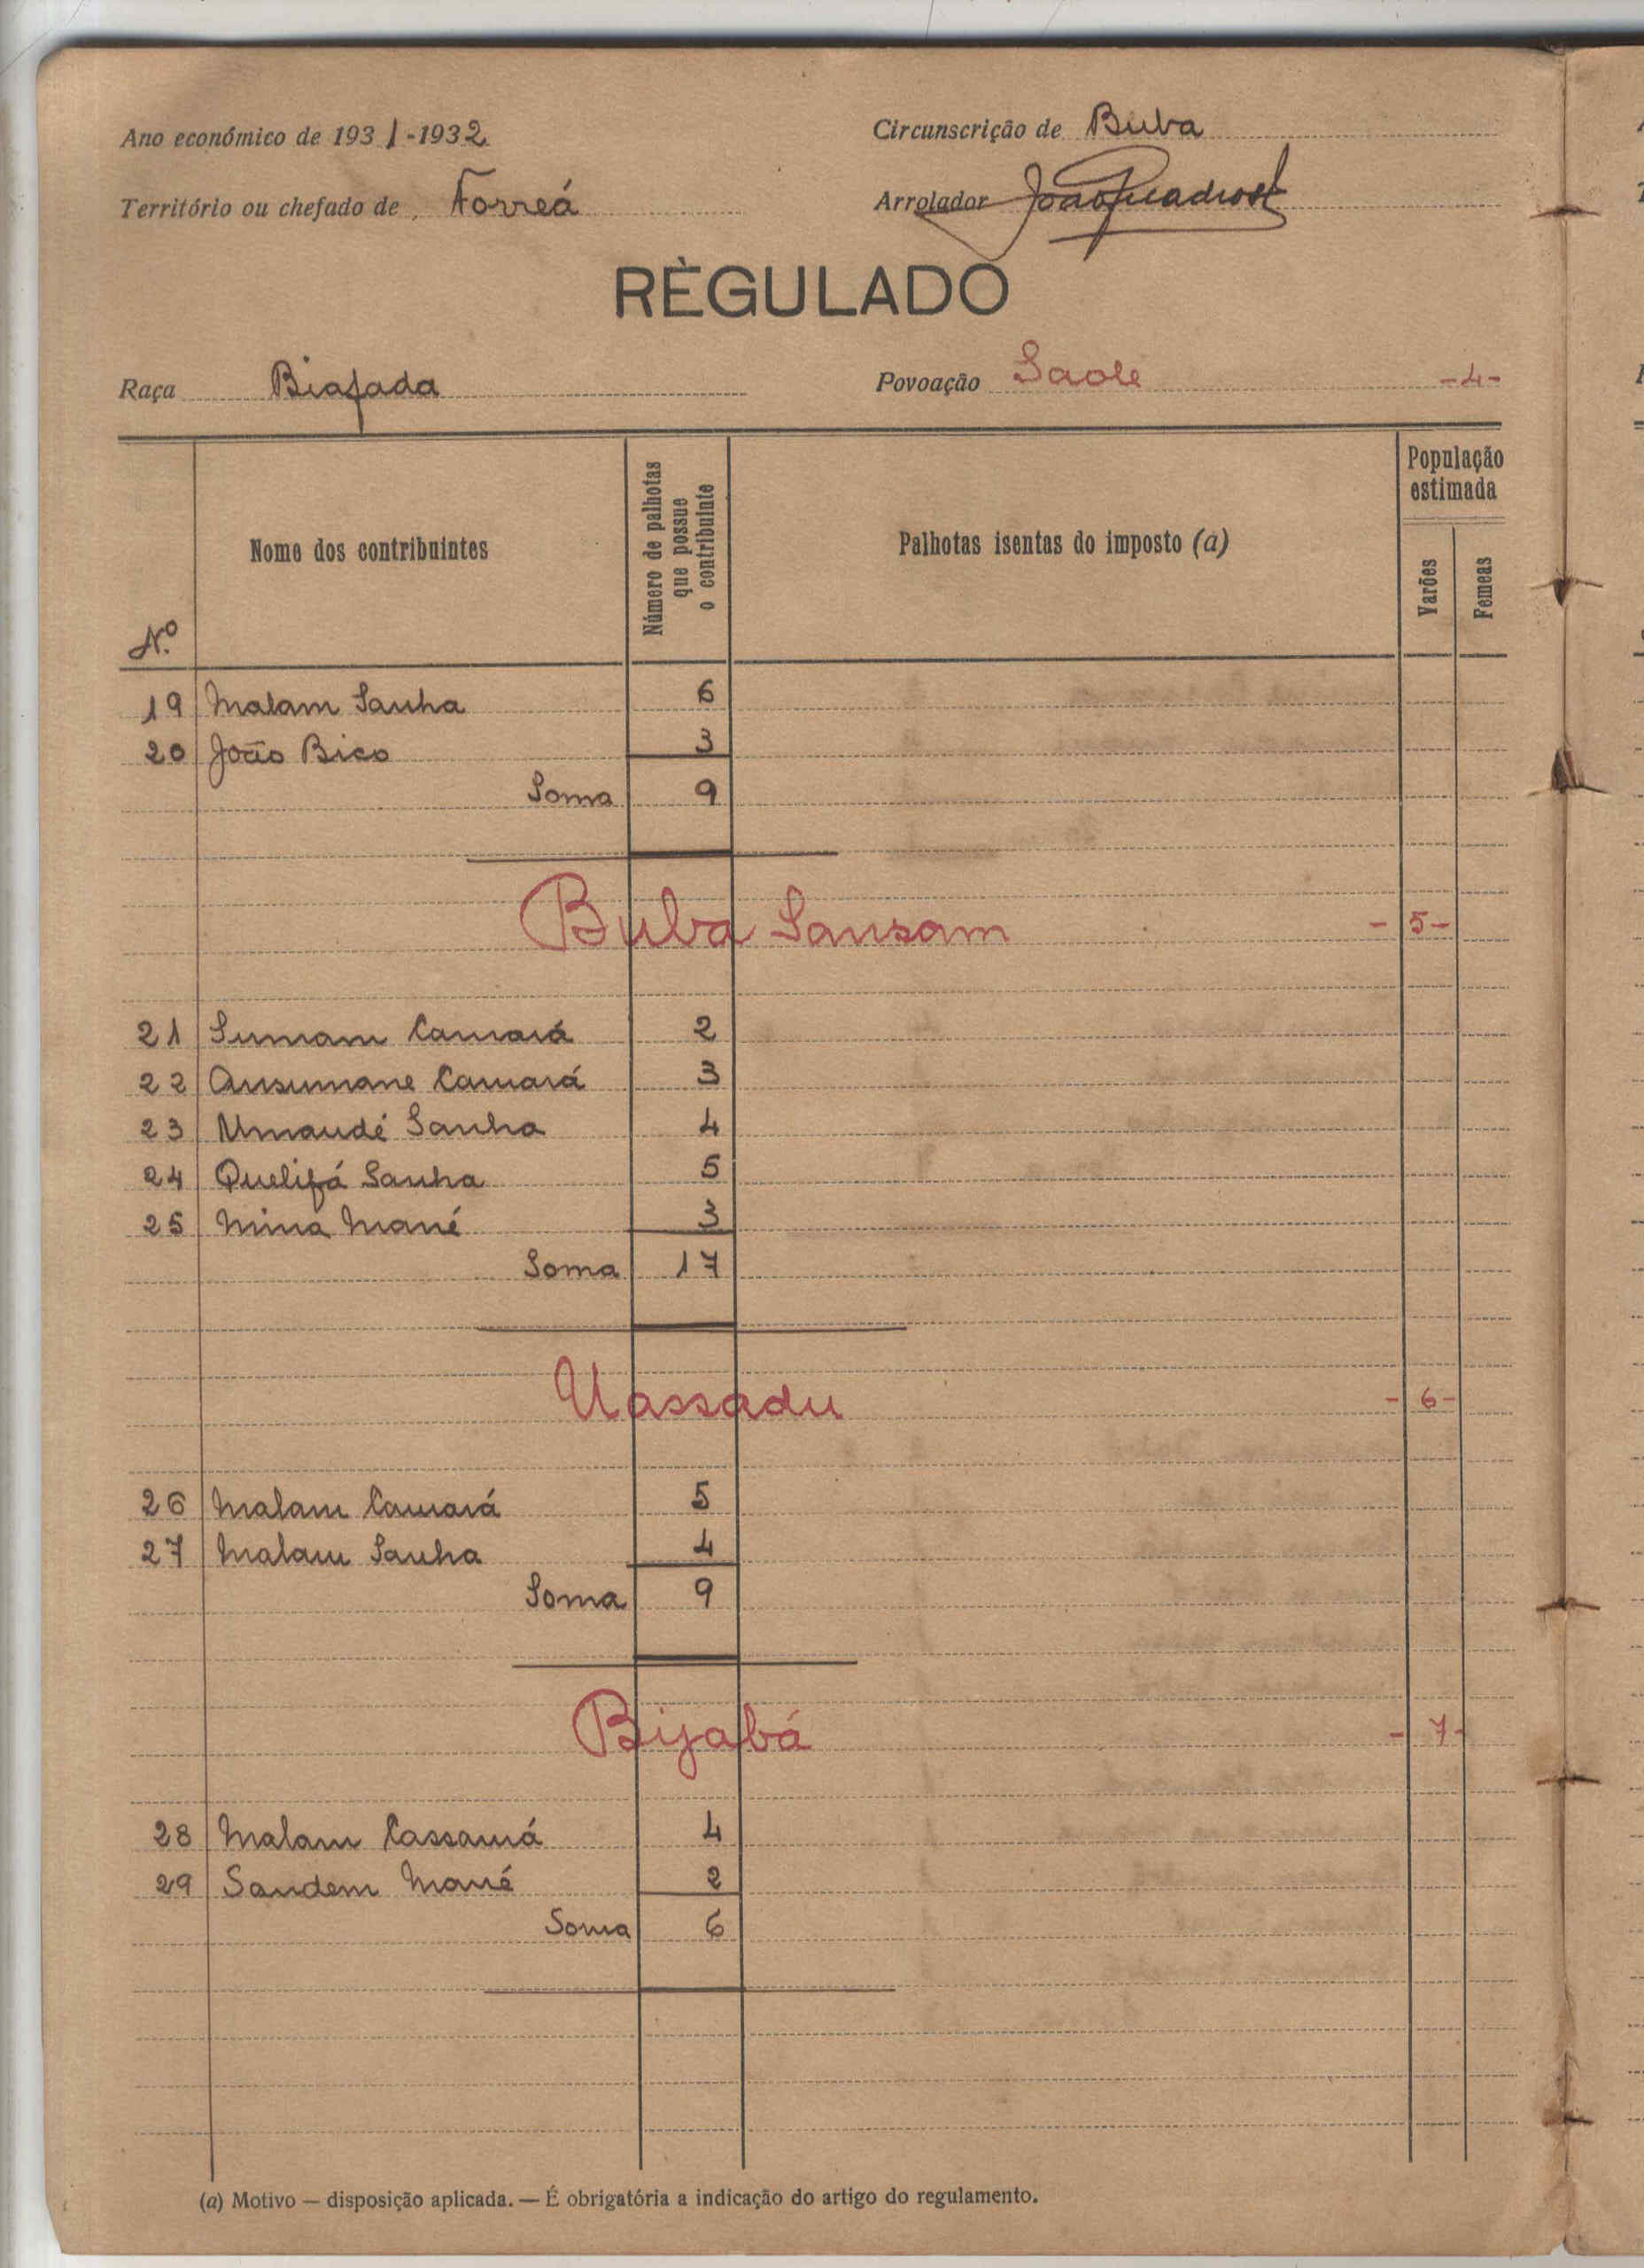 Ano económico de 1931-1932
Circunscrição de Buba
Território ou chefado de Forreá
Arrolador
RÈGULADO
Raça Biafada
Povoação Saole -4-
Nº
Nome dos contribuintes
Número de palhotas que possue o contribuinte
Palhotas isentas do imposto (a)
População estimada
Varões
Femeas
19 Malam Sanha 6
20 João Bico 3
Soma 9
Buba Sansam -5-
21 Sumam Camará 2
22 Ansumane Camará 3
23 Umaudé Sanha 4
24 Quelifá Sanha 5
25 Mina Mané 3
Soma 17
Uassadu -6-
26 Malam Camará 5
27 Malam Sanha 4
Soma 9
Bijabá -7-
28 Malam Cassamá 4
29 Sandem Mané 2
Soma 6
(a) Motivo — disposição aplicada. — É obrigatória a indicação do artigo do regulamento.